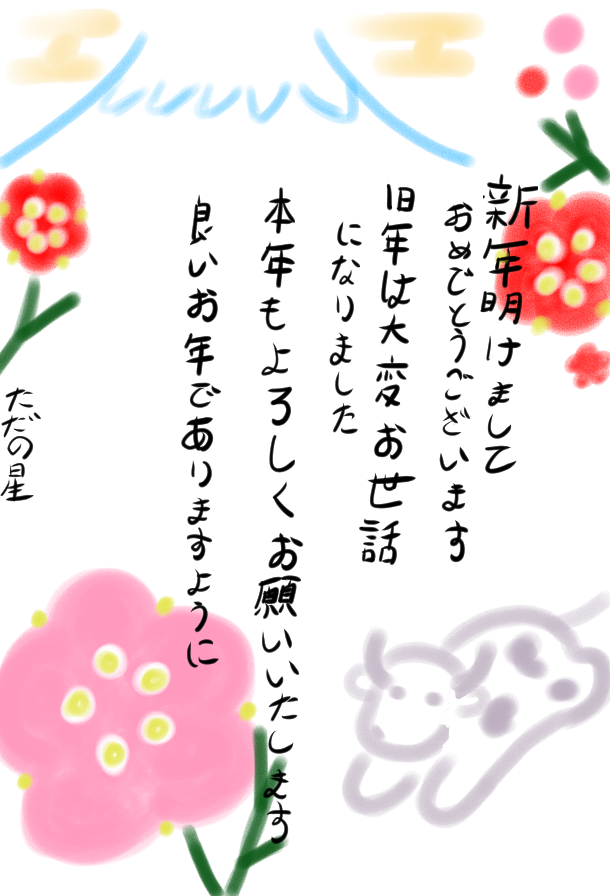 新年明けまして
おめでとうございます
旧年は大変お世話
になりました
本年もよろしくお願いいたします
良いお年でありますように
ただの星